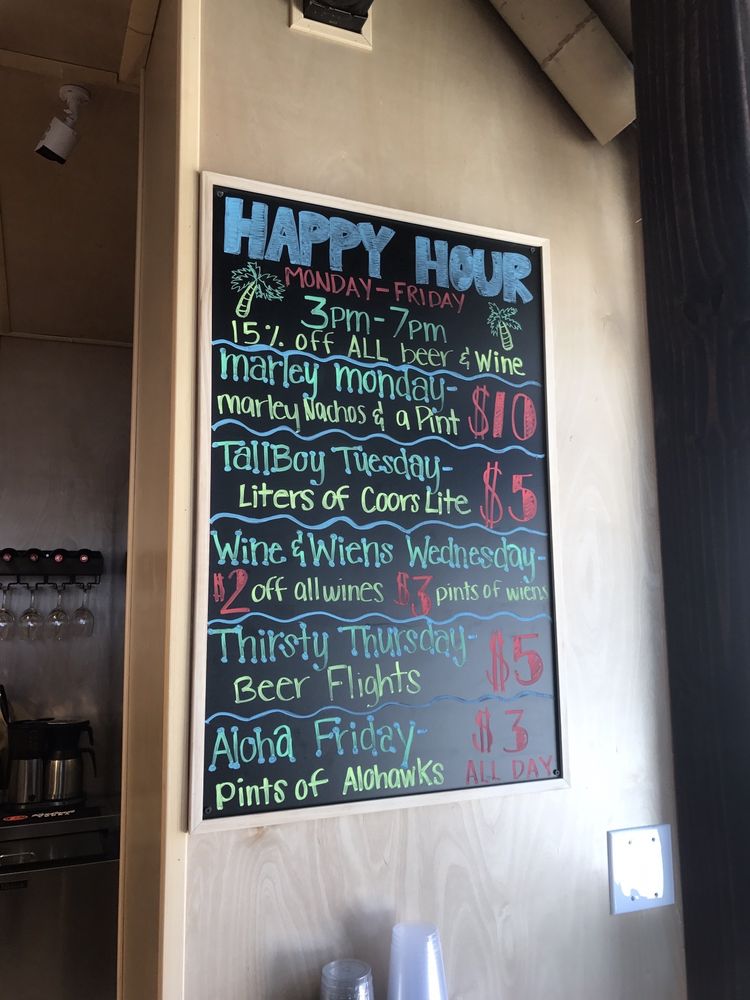 HAPPY HOUR
MONDAY-FRIDAY
3pm-7pm
15% off ALL beer & Wine
marley monday-
marley Nachos & a Pint $10
TallBoy Tuesday-
Liters of Coors Lite $5
Wine & Wiens Wednesday-
$2 off all wines $3 pints of wiens
Thirsty Thursday-
Beer Flights $5
Aloha Friday- $3
Pints of Alohawks ALL DAY